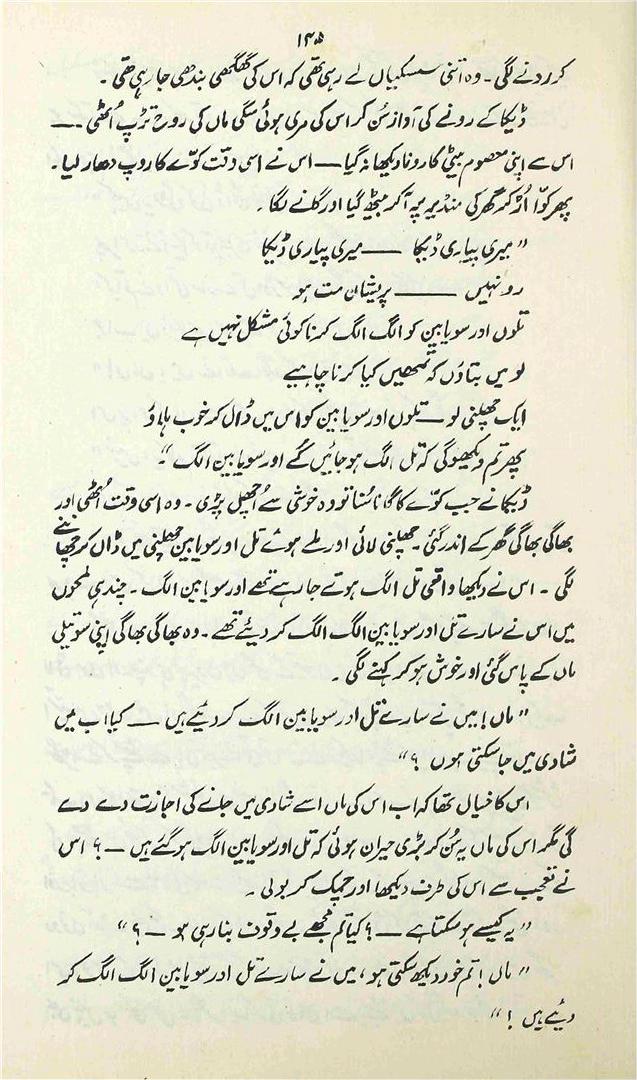 ۱۴۵
کر رونے لگی۔ وہ اتنی سسکیاں لے رہی تھی کہ اس کی گھگھی بندھی جا رہی تھی۔
ڈیکا کے رونے کی آواز سُن کر اس کی مری ہوئی سگی ماں کی روح تڑپ اُٹھی —
اس سے اپنی معصوم بیٹی کا رونا دیکھا نہ گیا — اس نے اسی وقت کوّے کا روپ دھار لیا۔
پھر کوّا اُڑ کر گھر کی منڈیر پر آکر بیٹھ گیا اور گانے لگا۔
" میری پیاری ڈیکا — میری پیاری ڈیکا
رو نہیں — پریشان مت ہو
تلوں اور سویابین کو الگ الگ کرنا کوئی مشکل نہیں ہے
لو میں بتاؤں کہ تمھیں کیا کرنا چاہیے
ایک چھلنی لو — تلوں اور سویابین کو اس میں ڈال کر خوب ہلاؤ
پھر تم دیکھوگی کہ تل الگ ہو جائیں گے اور سویابین الگ "۔
ڈیکا نے جب کوّے کا گانا سُنا تو وہ خوشی سے اُچھل پڑی۔ وہ اسی وقت اُٹھی اور
بھاگی بھاگی گھر کے اندر گئی۔ چھلنی لائی اور ملے ہوئے تل اور سویابین چھلنی میں ڈال کر چھاننے
لگی۔ اس نے دیکھا واقعی تل الگ ہوتے جا رہے تھے اور سویابین الگ۔ چند ہی لمحوں
میں اس نے سارے تل اور سویابین الگ الگ کر دیئے تھے۔ وہ بھاگی بھاگی اپنی سوتیلی
ماں کے پاس گئی اور خوش ہو کر کہنے لگی۔
" ماں! میں نے سارے تل اور سویابین الگ کر دیئے ہیں — کیا اب میں
شادی میں جا سکتی ہوں ؟"
اس کا خیال تھا کہ اب اس کی ماں اسے شادی میں جانے کی اجازت دے دے
گی مگر اس کی ماں یہ سُن کر بڑی حیران ہوئی کہ تل اور سویابین الگ ہو گئے ہیں — ؟ اس
نے تعجب سے اس کی طرف دیکھا اور چمک کر بولی۔
" یہ کیسے ہو سکتا ہے — ؟ کیا تم مجھے بے وقوف بنا رہی ہو — ؟ "
" ماں! تم خود دیکھ سکتی ہو، میں نے سارے تل اور سویابین الگ الگ کر
دیئے ہیں ! "